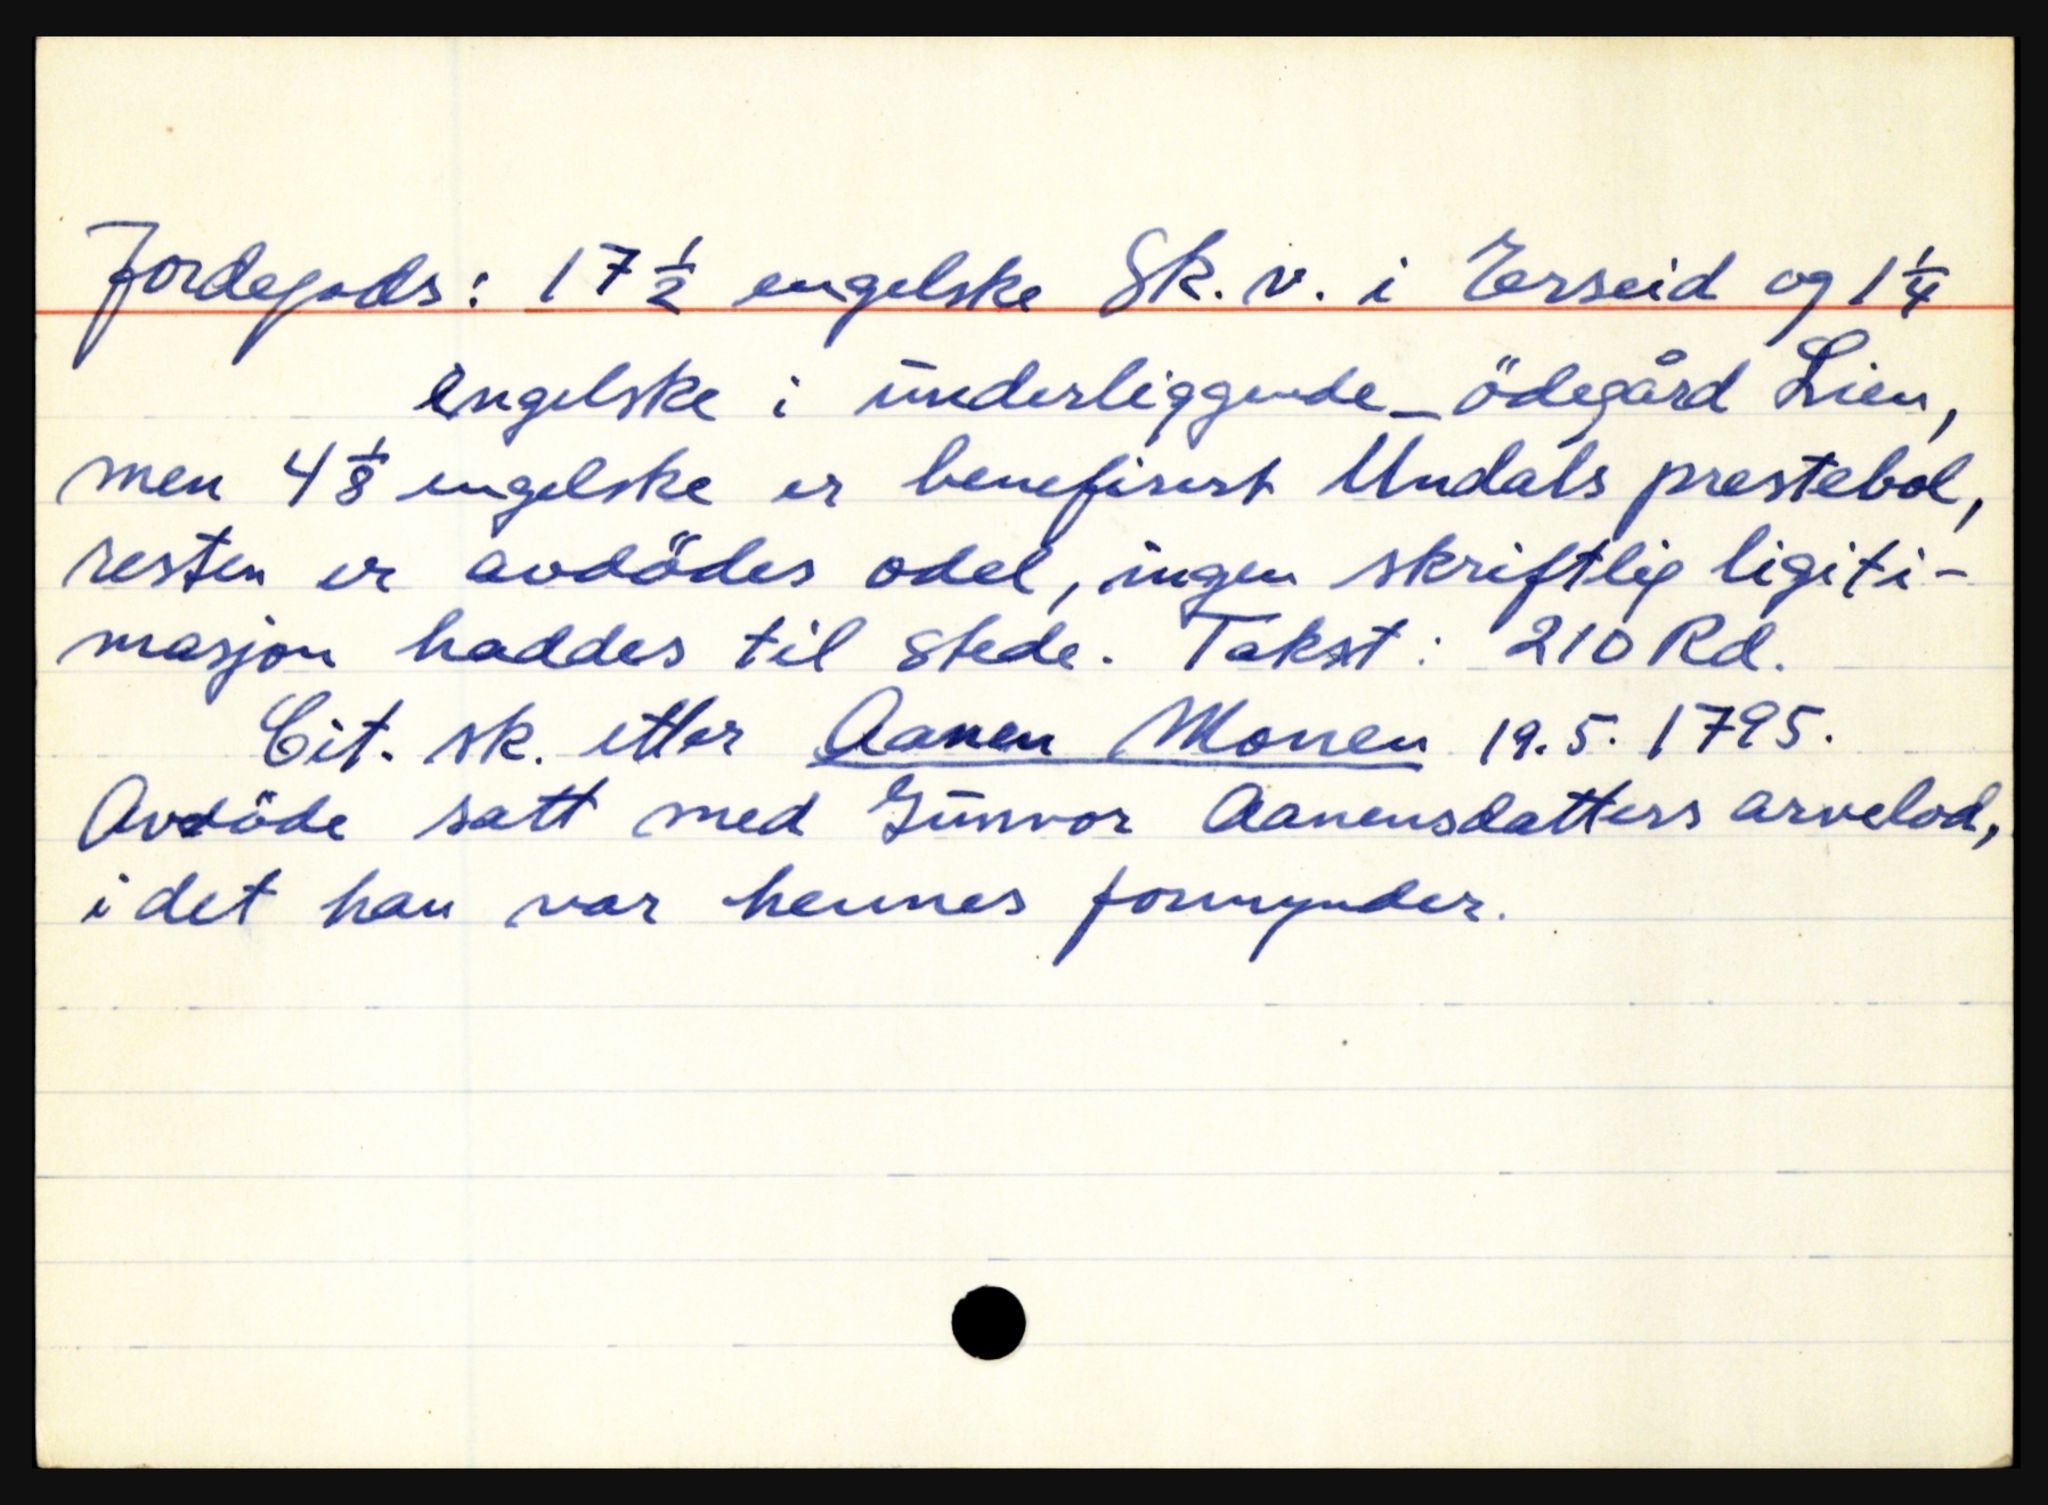 Jordegods: 17 1/2 engelske Sk. v. i Erseid og 1 1/4
engelske i underliggende ödegård Lien,
men 4 1/8 engelske er benefisert Undals prestebol,
resten er avdödes odel, ingen skriftlig ligiti-
masjon haddes til stede. Takst: 210 Rd.
Cit. sk. etter Aanen Monen 19.5.1795.
Avdöde satt med Gunvor Aanensdatters arvelod,
i det han var hennes formynder.